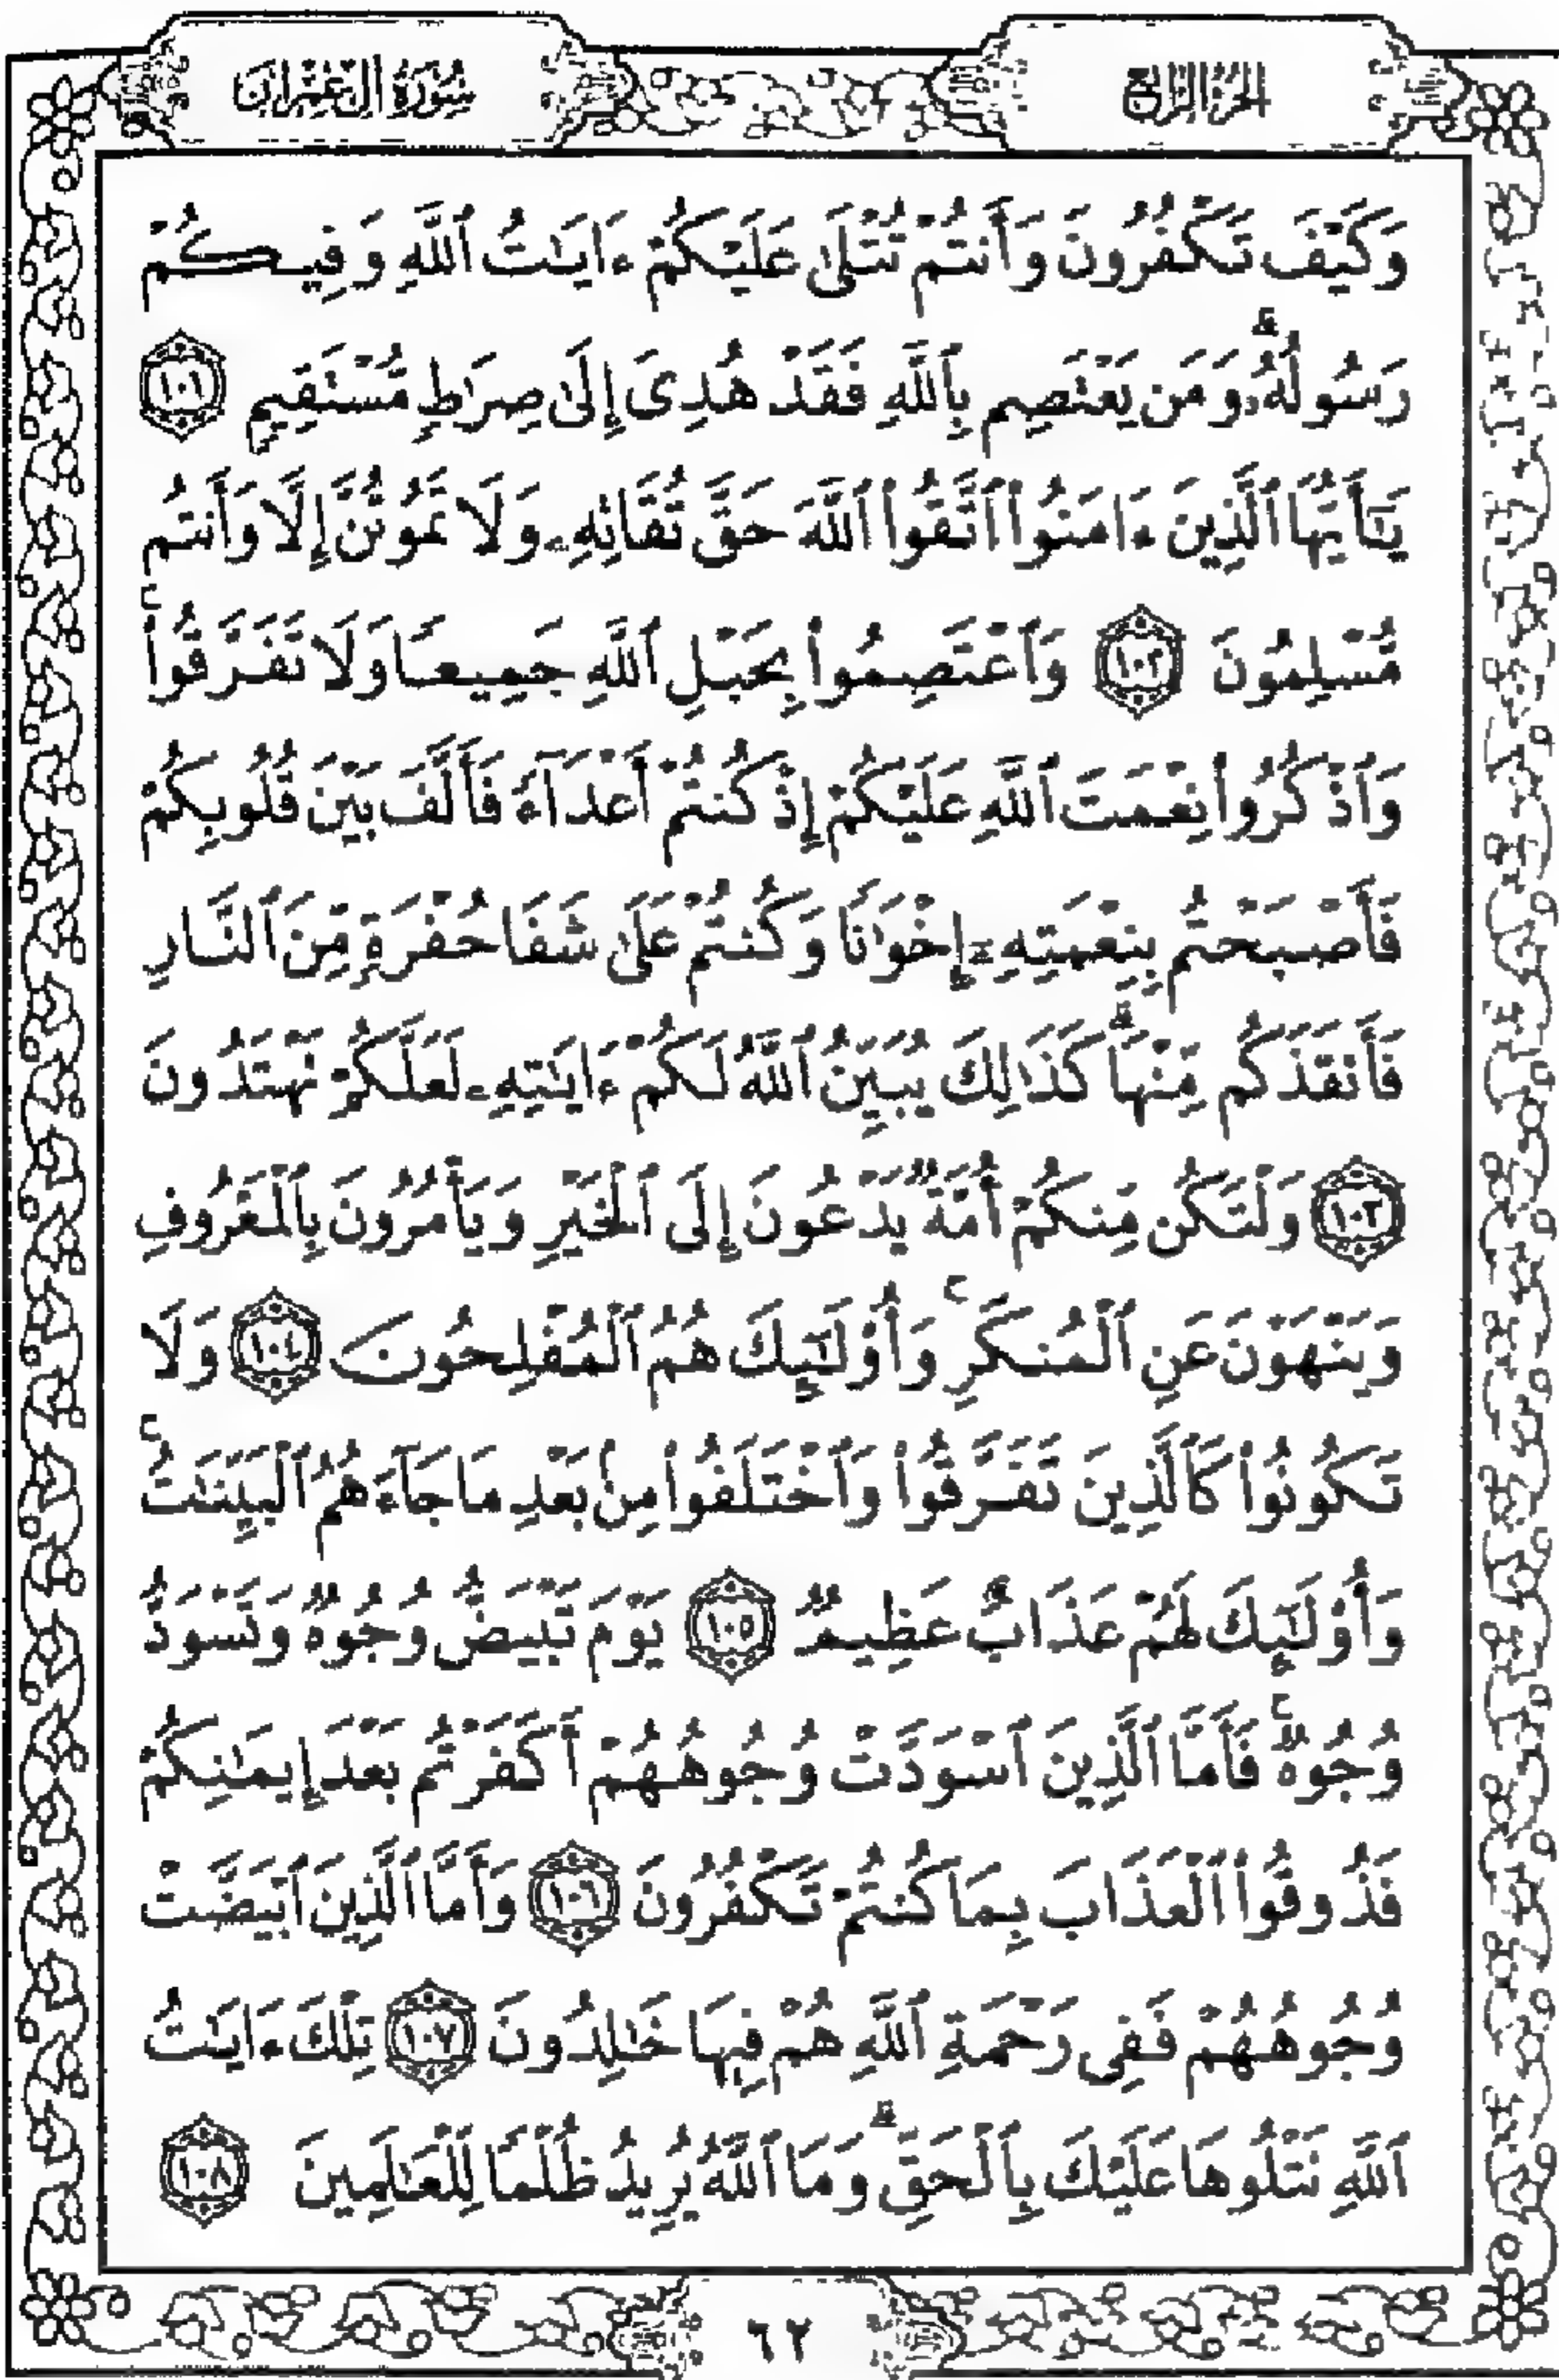 سُورَةُ آلِ عِمْرَانَ
الجُزْءُ الرَّابِعُ
وَكَيْفَ تَكْفُرُونَ وَأَنتُمْ تُتْلَىٰ عَلَيْكُمْ ءَايَٰتُ ٱللَّهِ وَفِيكُمْ
رَسُولُهُۥ ۗ وَمَن يَعْتَصِم بِٱللَّهِ فَقَدْ هُدِىَ إِلَىٰ صِرَٰطٍ مُّسْتَقِيمٍ ١٠١
يَٰٓأَيُّهَا ٱلَّذِينَ ءَامَنُوا۟ ٱتَّقُوا۟ ٱللَّهَ حَقَّ تُقَاتِهِۦ وَلَا تَمُوتُنَّ إِلَّا وَأَنتُم
مُّسْلِمُونَ ١٠٢ وَٱعْتَصِمُوا۟ بِحَبْلِ ٱللَّهِ جَمِيعًا وَلَا تَفَرَّقُوا۟ ۚ
وَٱذْكُرُوا۟ نِعْمَتَ ٱللَّهِ عَلَيْكُمْ إِذْ كُنتُمْ أَعْدَآءً فَأَلَّفَ بَيْنَ قُلُوبِكُمْ
فَأَصْبَحْتُم بِنِعْمَتِهِۦٓ إِخْوَٰنًا وَكُنتُمْ عَلَىٰ شَفَا حُفْرَةٍ مِّنَ ٱلنَّارِ
فَأَنقَذَكُم مِّنْهَا ۗ كَذَٰلِكَ يُبَيِّنُ ٱللَّهُ لَكُمْ ءَايَٰتِهِۦ لَعَلَّكُمْ تَهْتَدُونَ
١٠٣ وَلْتَكُن مِّنكُمْ أُمَّةٌ يَدْعُونَ إِلَى ٱلْخَيْرِ وَيَأْمُرُونَ بِٱلْمَعْرُوفِ
وَيَنْهَوْنَ عَنِ ٱلْمُنكَرِ ۚ وَأُو۟لَٰٓئِكَ هُمُ ٱلْمُفْلِحُونَ ١٠٤ وَلَا
تَكُونُوا۟ كَٱلَّذِينَ تَفَرَّقُوا۟ وَٱخْتَلَفُوا۟ مِنۢ بَعْدِ مَا جَآءَهُمُ ٱلْبَيِّنَٰتُ ۚ
وَأُو۟لَٰٓئِكَ لَهُمْ عَذَابٌ عَظِيمٌ ١٠٥ يَوْمَ تَبْيَضُّ وُجُوهٌ وَتَسْوَدُّ
وُجُوهٌ ۚ فَأَمَّا ٱلَّذِينَ ٱسْوَدَّتْ وُجُوهُهُمْ أَكَفَرْتُم بَعْدَ إِيمَٰنِكُمْ
فَذُوقُوا۟ ٱلْعَذَابَ بِمَا كُنتُمْ تَكْفُرُونَ ١٠٦ وَأَمَّا ٱلَّذِينَ ٱبْيَضَّتْ
وُجُوهُهُمْ فَفِى رَحْمَةِ ٱللَّهِ هُمْ فِيهَا خَٰلِدُونَ ١٠٧ تِلْكَ ءَايَٰتُ
ٱللَّهِ نَتْلُوهَا عَلَيْكَ بِٱلْحَقِّ ۗ وَمَا ٱللَّهُ يُرِيدُ ظُلْمًا لِّلْعَٰلَمِينَ ١٠٨
٦٢